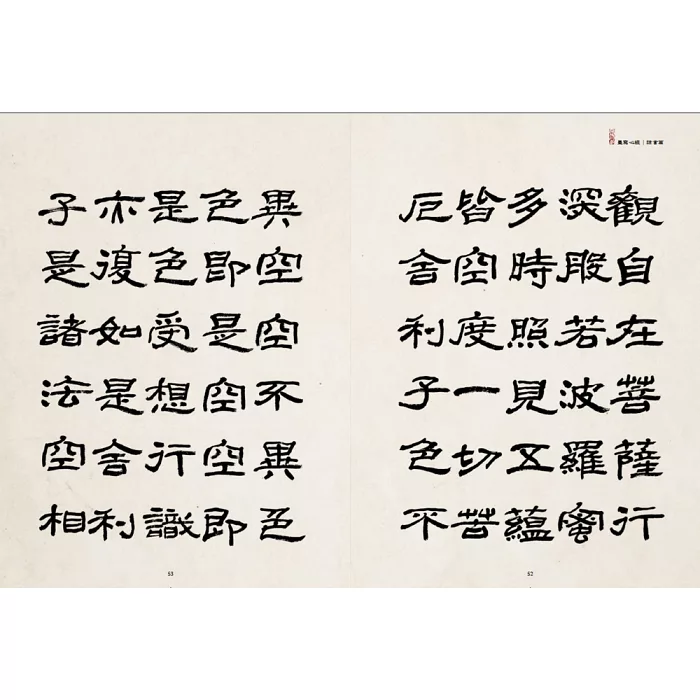 寫心經｜隸書篇
觀自在菩薩行
深般若波羅蜜
多時照見五蘊
皆空度一切苦
厄舍利子色不
52
異空空不異色
色即是空空即
是色受想行識
亦復如是舍利
子是諸法空相
53